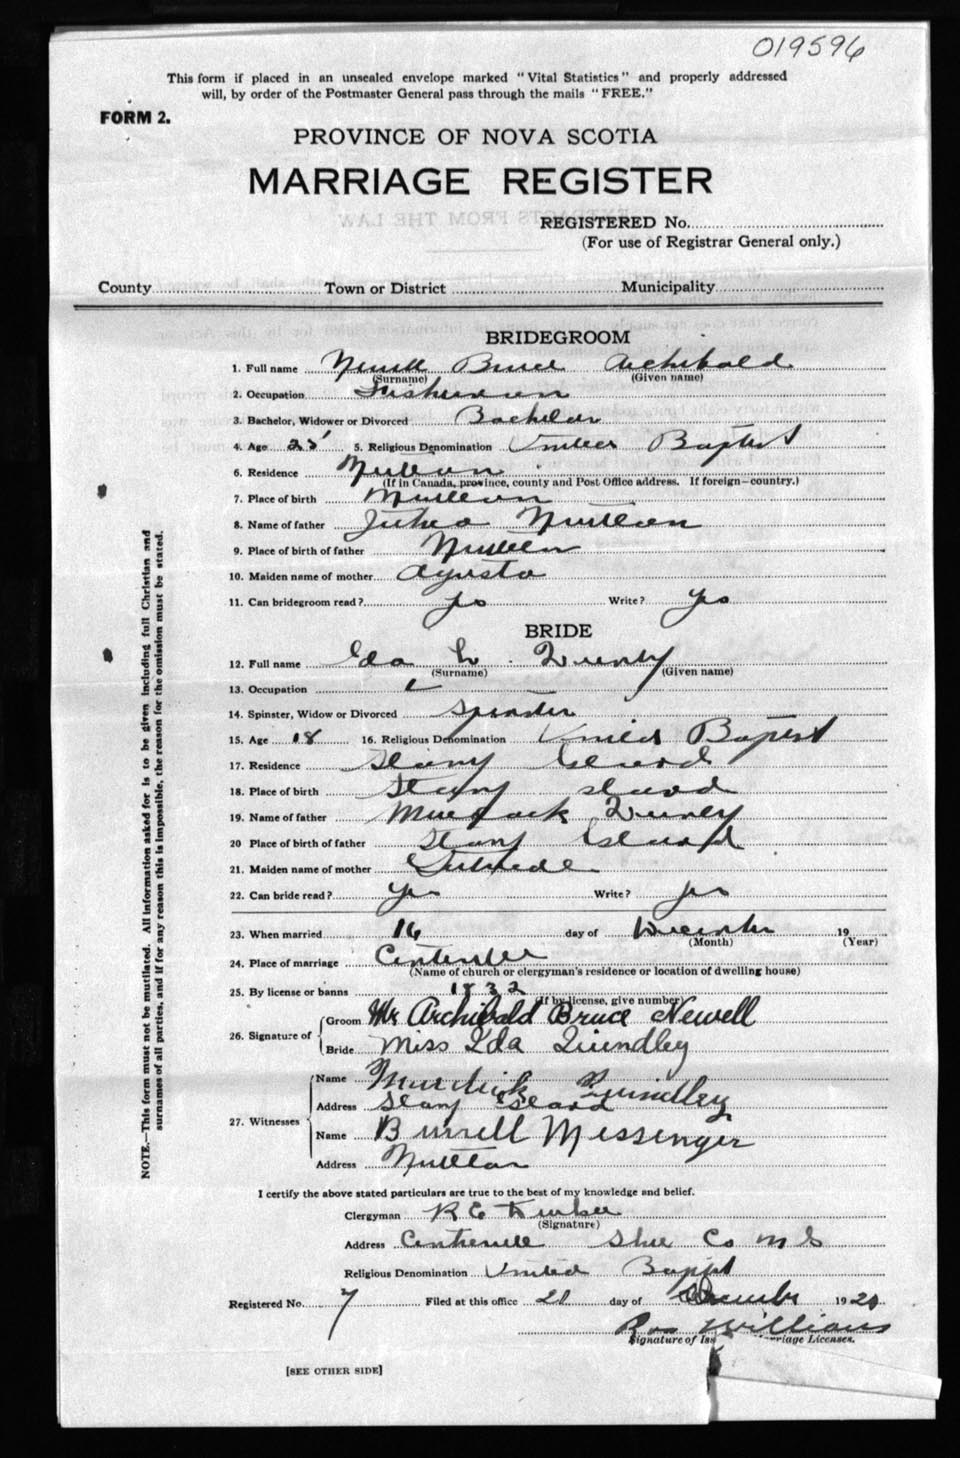 019596
This form if placed in an unsealed envelope marked "Vital Statistics" and properly addressed
will, by order of the Postmaster General pass through the mails "FREE."
FORM 2.
PROVINCE OF NOVA SCOTIA
MARRIAGE REGISTER
REGISTERED No.
(For use of Registrar General only.)
County Town or District Municipality
BRIDEGROOM
1. Full name Newell Bruce Archibald
(Surname) (Given name)
2. Occupation Fisherman
3. Bachelor, Widower or Divorced Bachelor
4. Age 25 5. Religious Denomination United Baptist
6. Residence
(If in Canada, province, county and Post Office address. If foreign—country.)
7. Place of birth
8. Name of father
9. Place of birth of father
10. Maiden name of mother Agusta
11. Can bridegroom read? yes Write? yes
BRIDE
12. Full name Ida L.
(Surname) (Given name)
13. Occupation
14. Spinster, Widow or Divorced Spinster
15. Age 18 16. Religious Denomination United Baptist
17. Residence Stony Island
18. Place of birth Stony Island
19. Name of father
20 Place of birth of father Stony Island
21. Maiden name of mother
22. Can bride read? yes Write? yes
23. When married 16 day of December 19
(Month) (Year)
24. Place of marriage Centreville
(Name of church or clergyman's residence or location of dwelling house)
25. By license or banns 1832
(If by license, give number)
26. Signature of Groom Mr Archibald Bruce Newell
Bride Miss Ida Quindley
27. Witnesses Name Murdick Quindley
Address Stony Island
Name Burrell Messenger
Address
I certify the above stated particulars are true to the best of my knowledge and belief.
Clergyman R E
(Signature)
Address Centreville Shel Co N S
Religious Denomination United Baptist
Registered No. 7 Filed at this office 21 day of December 1920
Williams
Signature of Iss riage Licenses.
[SEE OTHER SIDE]
NOTE.—This form must not be mutilated. All information asked for is to be given including full Christian and
surnames of all parties, and if for any reason this is impossible, the reason for the omission must be stated.